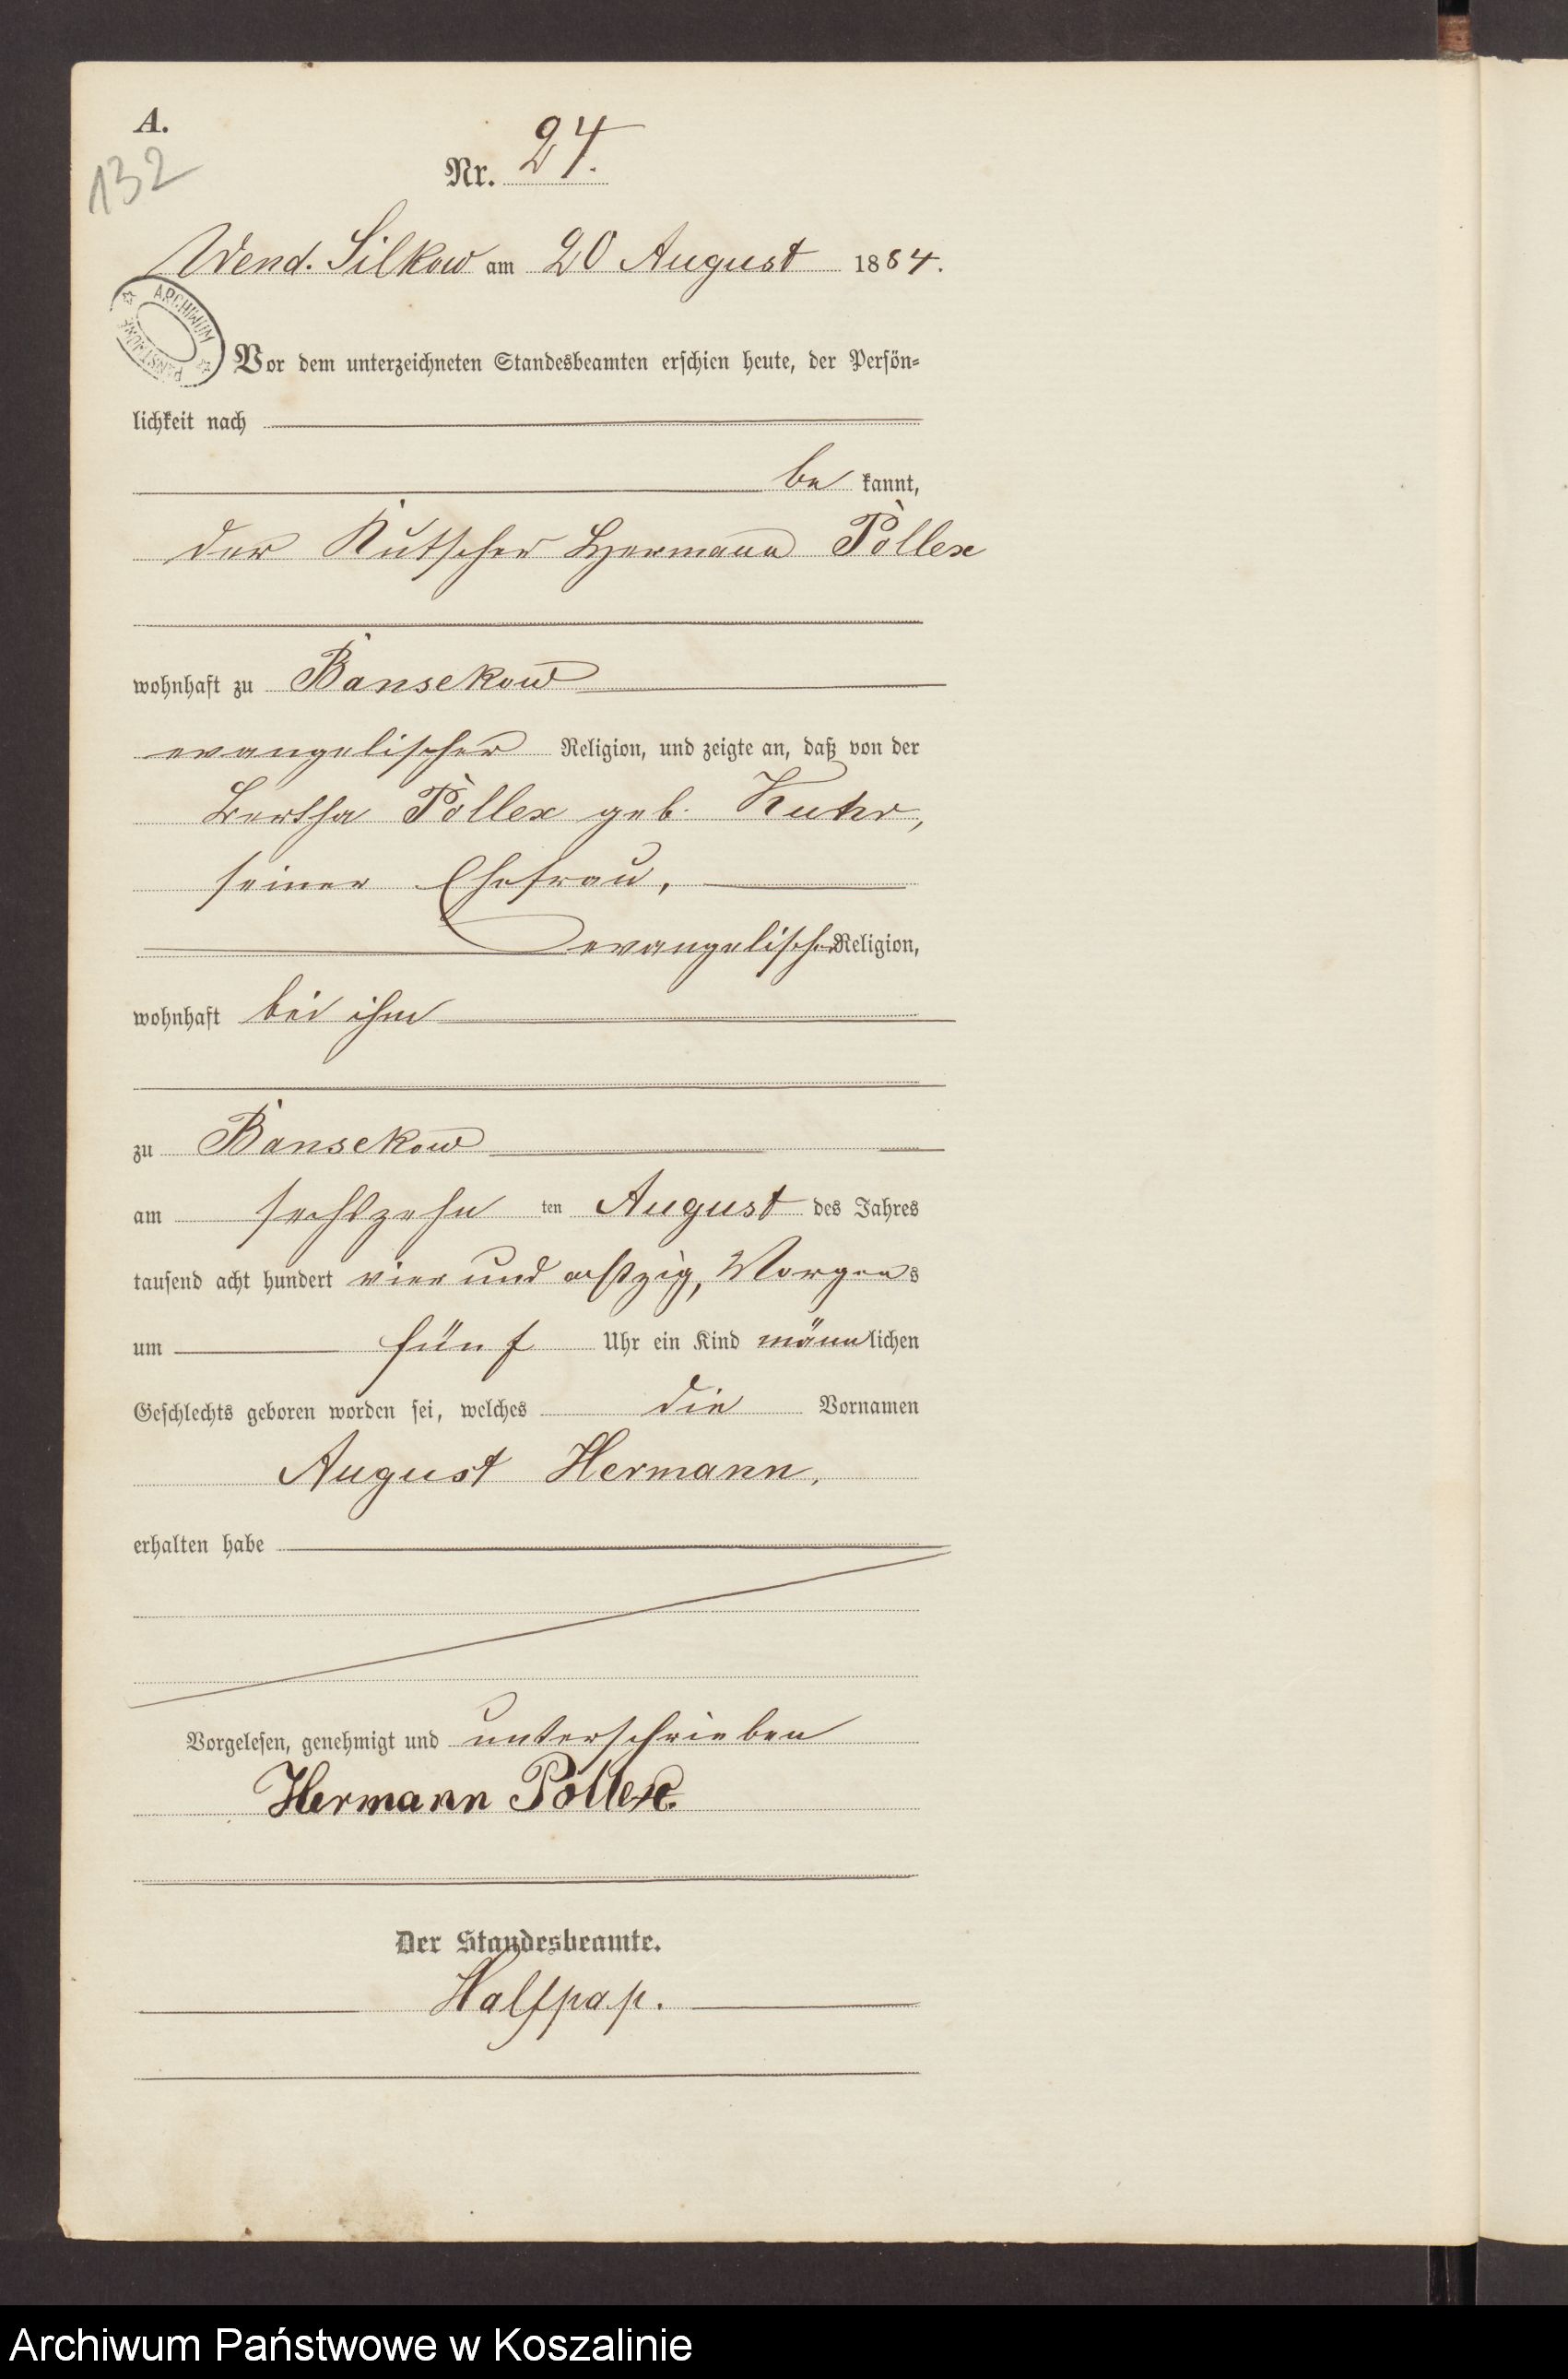 A.
132
Nr. 24.
Wend. Silkow am 20 August 1884.
ARCHIWUM
PAŃSTWOWE
Vor dem unterzeichneten Standesbeamten erschien heute, der Persön=
lichkeit nach
be kannt,
der Kutscher Hermann Pollex
wohnhaft zu Bansekow
evangelischer Religion, und zeigte an, daß von der
Bertha Pollex geb. Kuhr,
seiner Ehefrau,
evangelischer Religion,
wohnhaft bei ihm
zu Bansekow
am sechszehn ten August des Jahres
tausend acht hundert vier und achtzig, Morgens
um fünf Uhr ein Kind männlichen
Geschlechts geboren worden sei, welches die Vornamen
August Hermann,
erhalten habe
Vorgelesen, genehmigt und unterschrieben
Hermann Pollex.
Der Standesbeamte.
Halfpap.
Archiwum Państwowe w Koszalinie